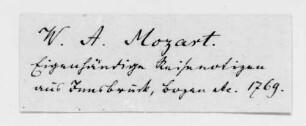 W. A. Mozart.
Eigenhändige Reisenotizen
aus Innsbruck, Bozen etc. 1769.